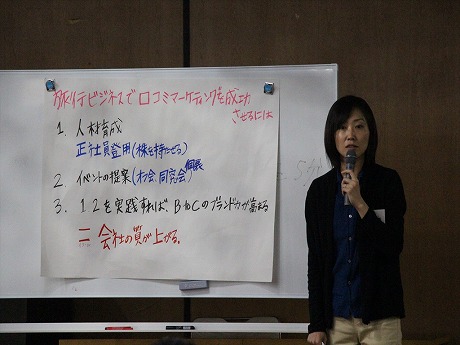 旅行ビジネスで口コミマーケティングを成功
させるには
1. 人材育成
正社員登用(株を持たせる)
2 イベントの提案(オフ会、同窓会
3. 1 2を実践すれば、BtoCのブランド力が高まる
= 会社の質が上がる。